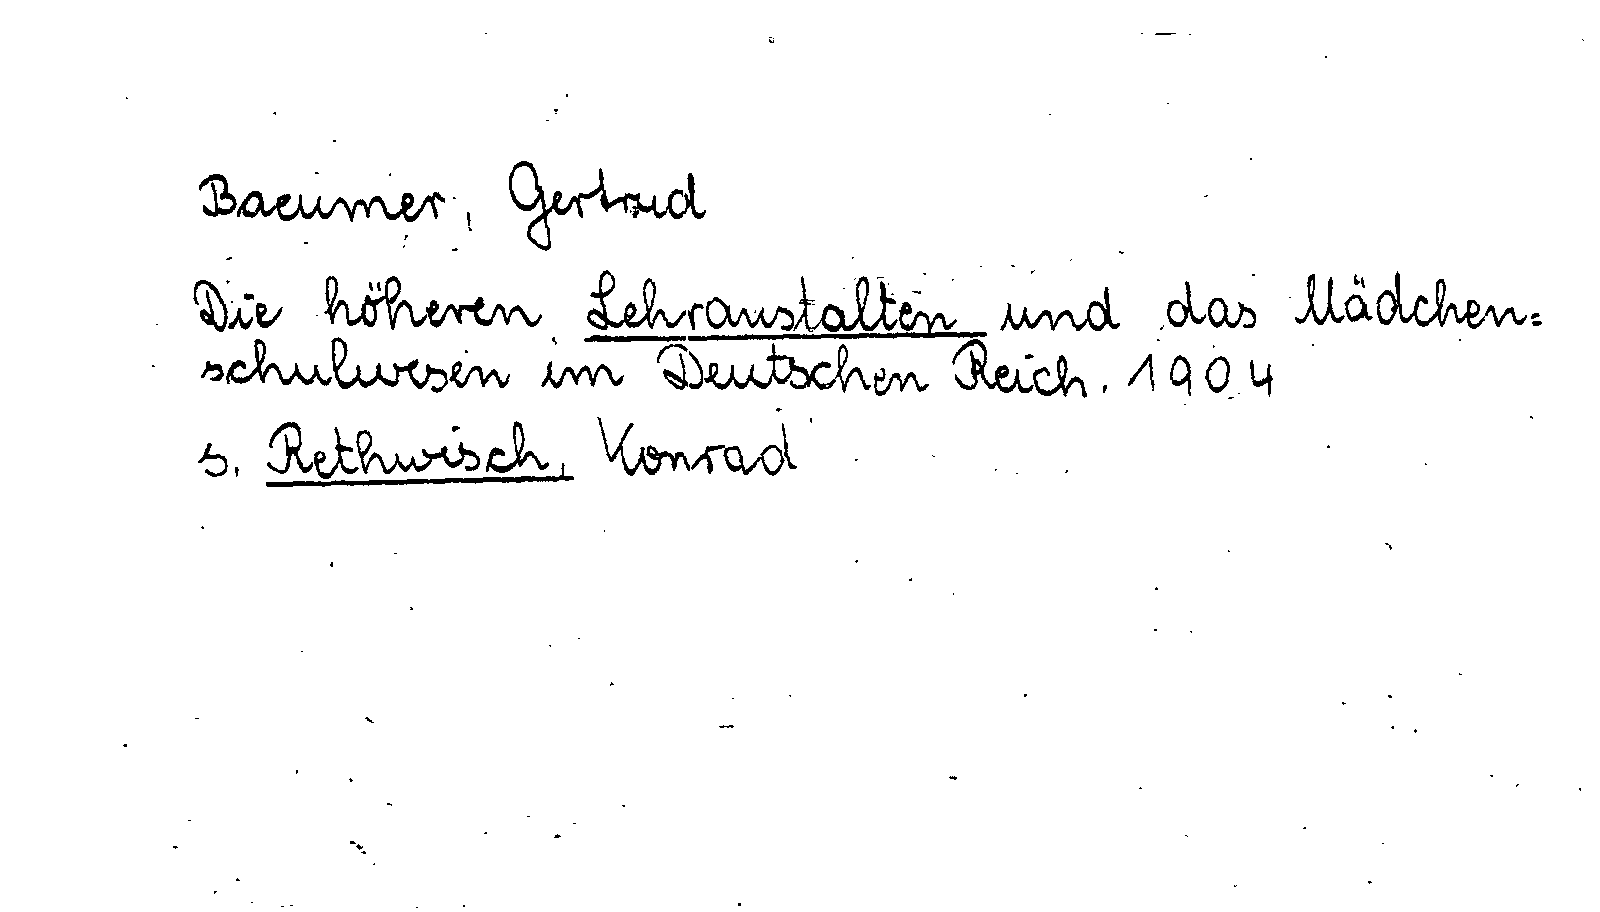 Baeumer, Gertrud
Die höheren Lehranstalten und das Mädchen=
schulwesen im Deutschen Reich. 1904
s. Rethwisch, Konrad